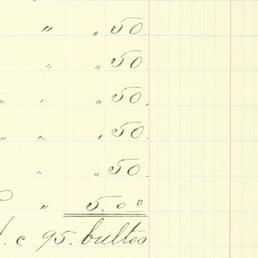 " " 50.
" " 50.
" " " 50.
" " " 50.
" " 50.
" 5.00
c 95. bultos